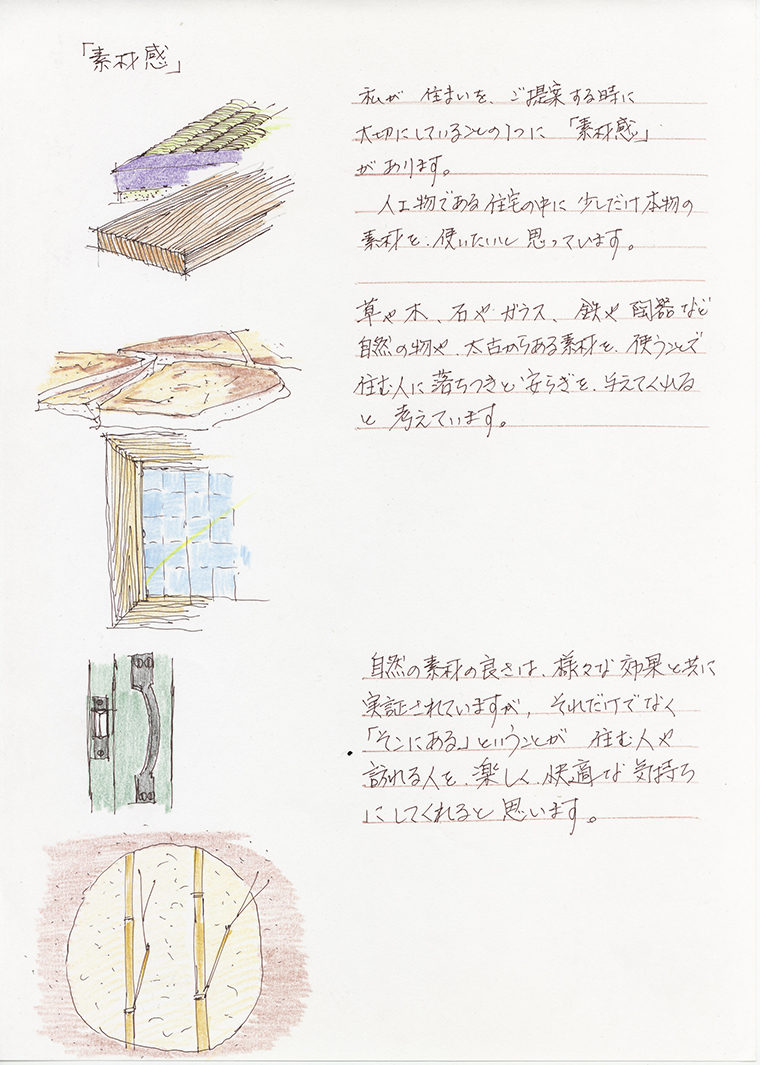 「素材感」
私が 住まいを、ご提案する時に
大切にしていることの1つに 「素材感」
があります。
人工物である住宅の中に 少しだけ本物の
素材を、使いたいと 思っています。
草や木、石や ガラス、鉄や 陶器など
自然の物や、太古からある素材を、使うことで
住む人に 落ちつきと 安らぎを、与えてくれる
と 考えています。
自然の素材の良さは、様々な 効果と共に
実証されていますが、それだけでなく
「そこにある」ということが 住む人や
訪れる人を、楽しく、快適な 気持ち
にしてくれると 思います。